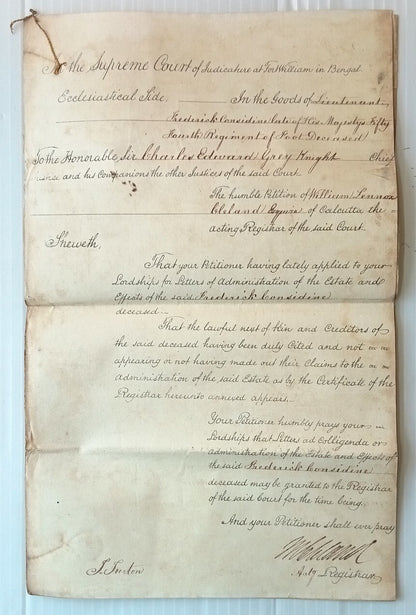 In the Supreme Court of Judicature at Fort William in Bengal.
Ecclesiastical Side, In the Goods of Lieutenant
Frederick Considine late of His Majestys Fifty
Fourth Regiment of Foot Deceased
To the Honorable Sir Charles Edward Grey Knight Chief
Justice and his Companions the other Justices of the said Court.
The humble Petition of William Lennox
Cleland Esquire of Calcutta the
acting Registrar of the said Court.
Sheweth,
That your Petitioner having lately applied to your
Lordships for Letters of Administration of the Estate and
Effects of the said Frederick Considine
deceased
That the lawful next of Kin and Creditors of
the said deceased having been duly Cited and not
appearing or not having made out their Claims to the
administration of the said Estate as by the Certificate of the
Registrar hereunto annexed appears.
Your Petitioner humbly prays your
Lordships that Letters ad Colligenda or
administration of the Estate and Effects of
the said Frederick Considine
deceased may be granted to the Registrar
of the said Court for the time being.
And your Petitioner shall ever pray
W L Cleland
Actg Registrar